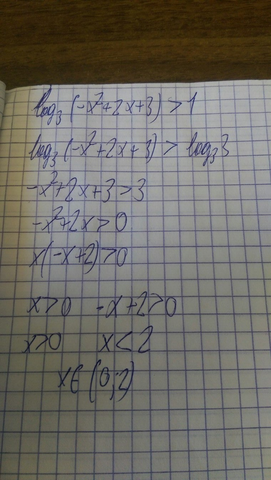 log₃(-x²+2x+3)>1
log₃(-x²+2x+3)>log₃3
-x²+2x+3>3
-x²+2x>0
x(-x+2)>0
x>0 -x+2>0
x>0 x<2
x∈(0;2)